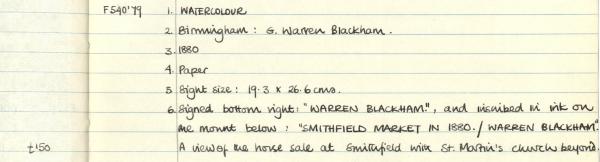 F540'79 1. WATERCOLOUR
2. Birmingham : G. Warren Blackham.
3. 1880
4. Paper
5. Sight size : 19.3 x 26.6 cms.
6. Signed bottom right: "WARREN BLACKHAM", and inscribed in ink on
the mount below : "SMITHFIELD MARKET IN 1880./ WARREN BLACKHAM"
£150 A view of the horse sale at Smithfield with St. Martin's church beyond.